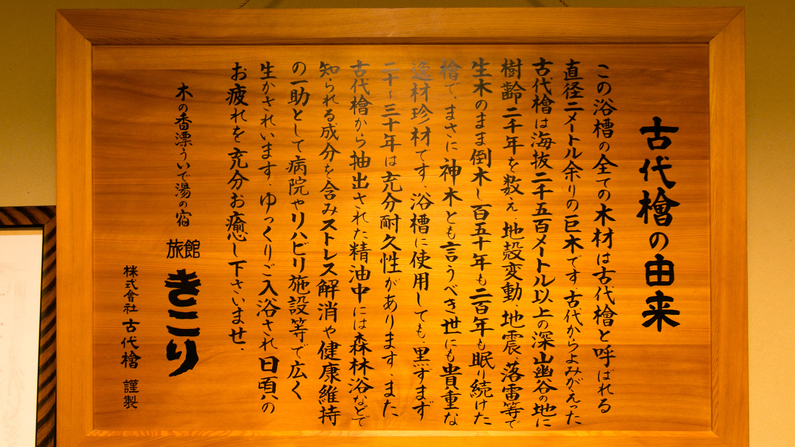 古代檜の由来
この浴槽の全ての木材は古代檜と呼ばれる
直径二メートル余りの巨木です。古代からよみがえった
古代檜は海抜二千五百メートル以上の深山幽谷の地に
樹齢二千年を数え、地殻変動、地震、落雷等で
生木のまま倒木し百五十年も二百年も眠り続けた
檜で、まさに神木とも言うべき世にも貴重な
逸材珍材です。浴槽に使用しても、黒ずまず
二十〜三十年は充分耐久性があります。また
古代檜から抽出された精油中には森林浴などで
知られる成分を含みストレス解消や健康維持
の一助として病院やリハビリ施設等で広く
生かされいます。ゆっくりご入浴され日頃の
お疲れを充分お癒し下さいませ。
木の香漂ういで湯の宿
旅館 きこり
株式會社 古代檜 謹製